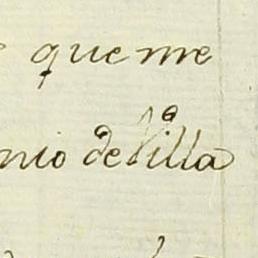 que me
nio de Villa